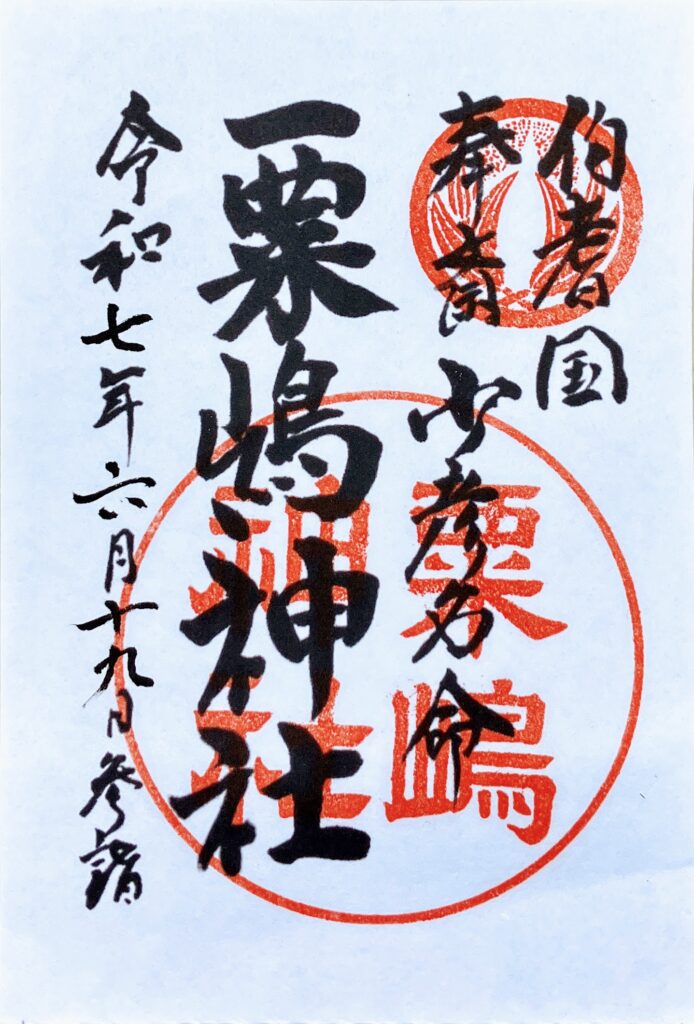 伯耆国
奉斎 少彦名命
粟嶋神社
令和七年六月十九日参詣
粟嶋
神社